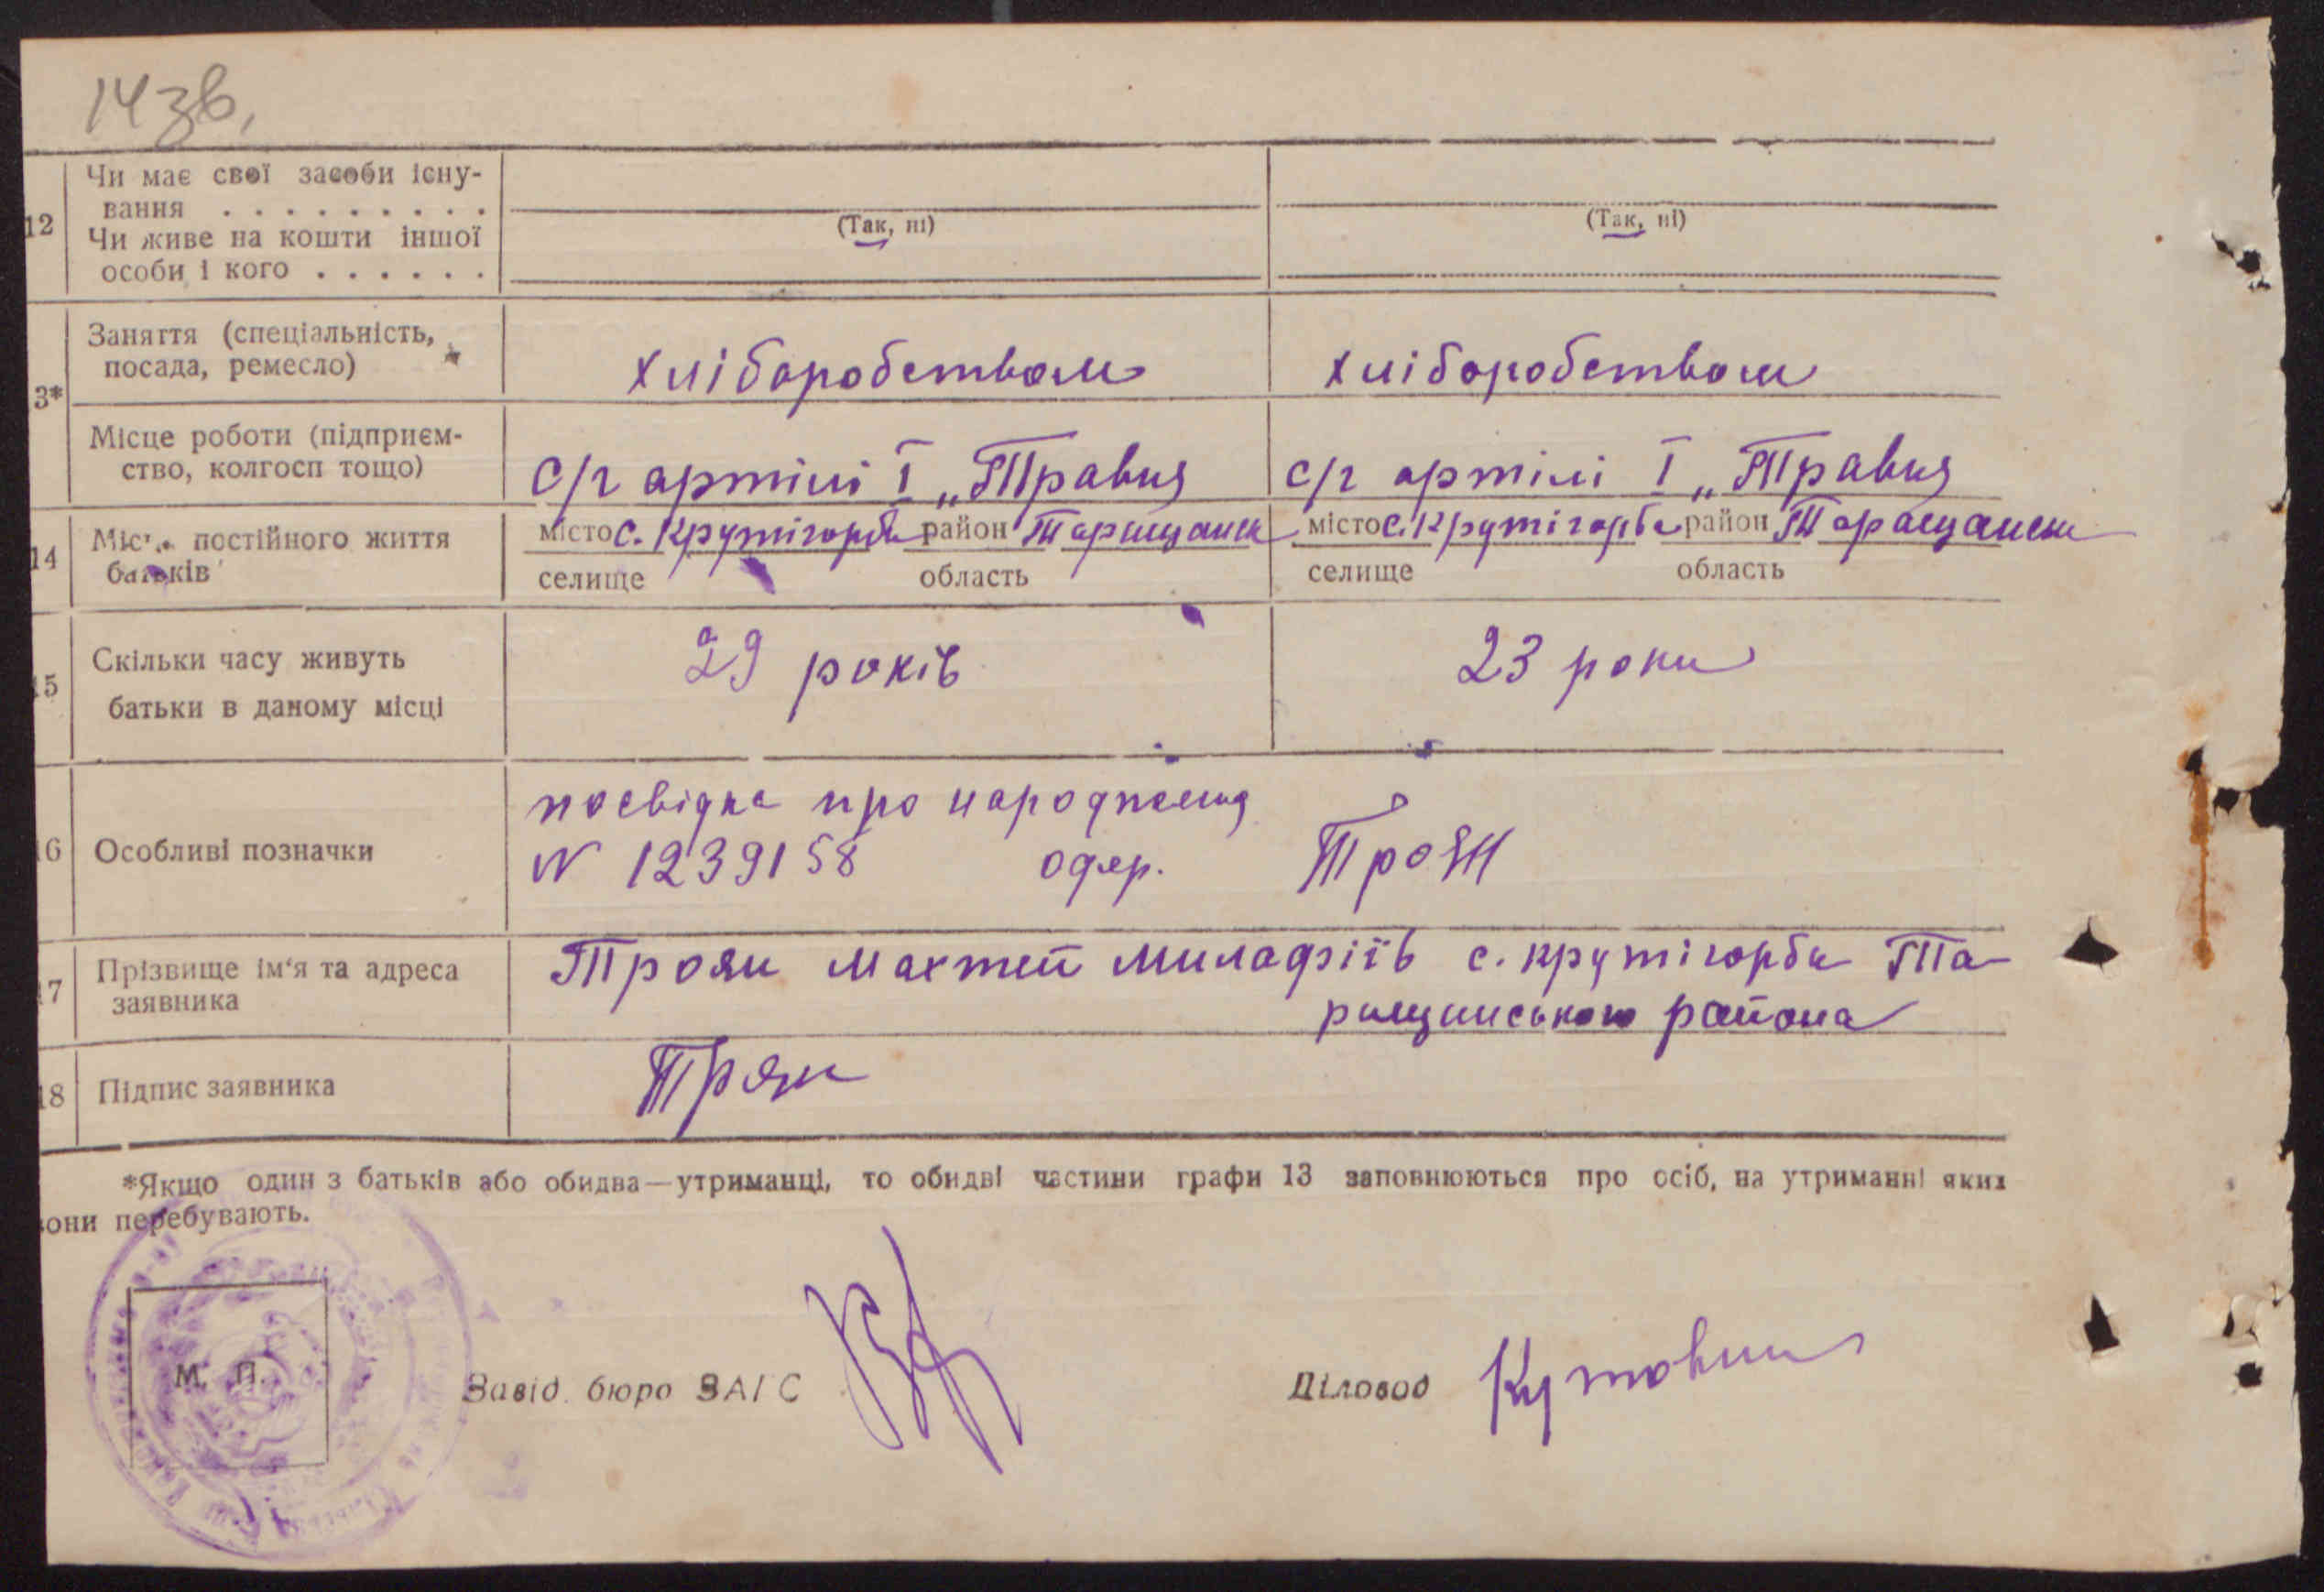 14 зв.
12 Чи має свої засоби існу-
вання . . . . . . . . .
(Так, ні) (Так, ні)
Чи живе на кошти іншої
особи і кого . . . . . .
3* Заняття (спеціальність,
посада, ремесло) хліборобством хліборобством
Місце роботи (підприєм-
ство, колгосп тощо) с/г артілі І „Травня с/г артілі І „Травня
14 Місц. постійного життя місто с. Крутігорби район Таращанськ місто с. Крутігорби район Таращанськ
батьків селище область селище область
15 Скільки часу живуть 29 років 23 роки
батьки в даному місці
посвідка про народження
16 Особливі позначки № 1239158 одер. Троян
17 Прізвище ім'я та адреса Троян Махтей с. Крутігорби Та-
заявника ращанського района
18 Підпис заявника Троян
*Якщо один з батьків або обидва—утриманці, то обидві частини графи 13 заповнюються про осіб, на утриманні яких
вони перебувають.
М. П.
Завід. бюро ЗАГС Діловод